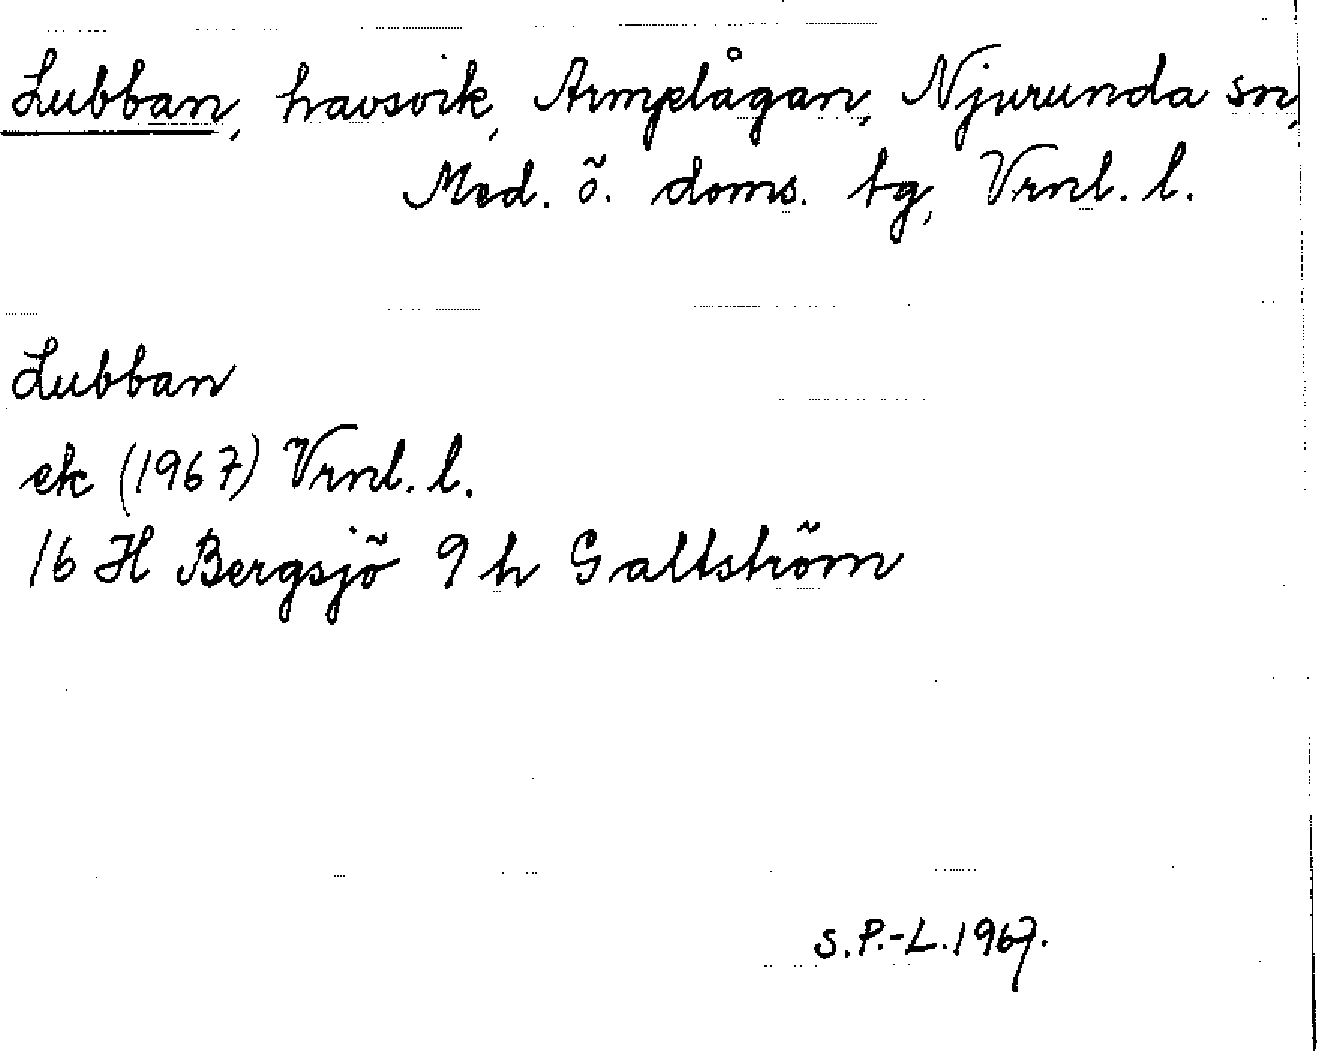 Lubban, havsvik, Armplågan, Njurunda sn,
Med. ö. doms. tg, Vrnl. l.
Lubban
ek (1967) Vrnl. l.
16 H Bergsjö 9 h Galtström
S.P.-L. 1967.